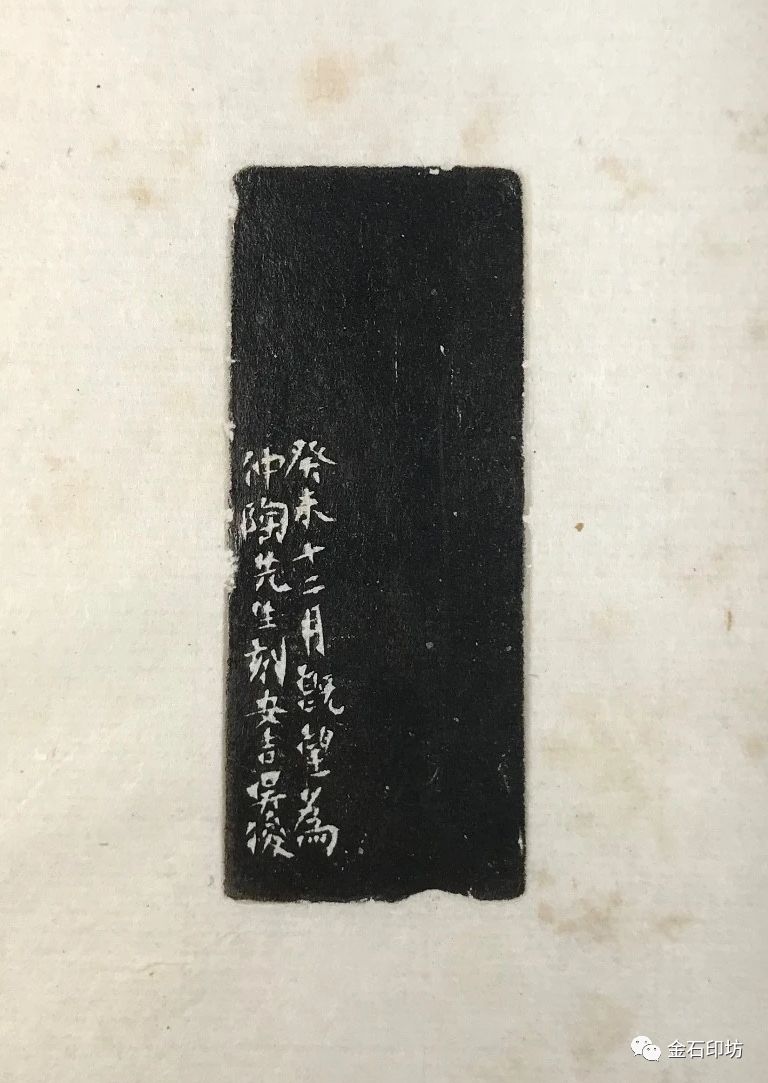 癸未十二月既望為
仲陶先生刻安吉吳俊
金石印坊